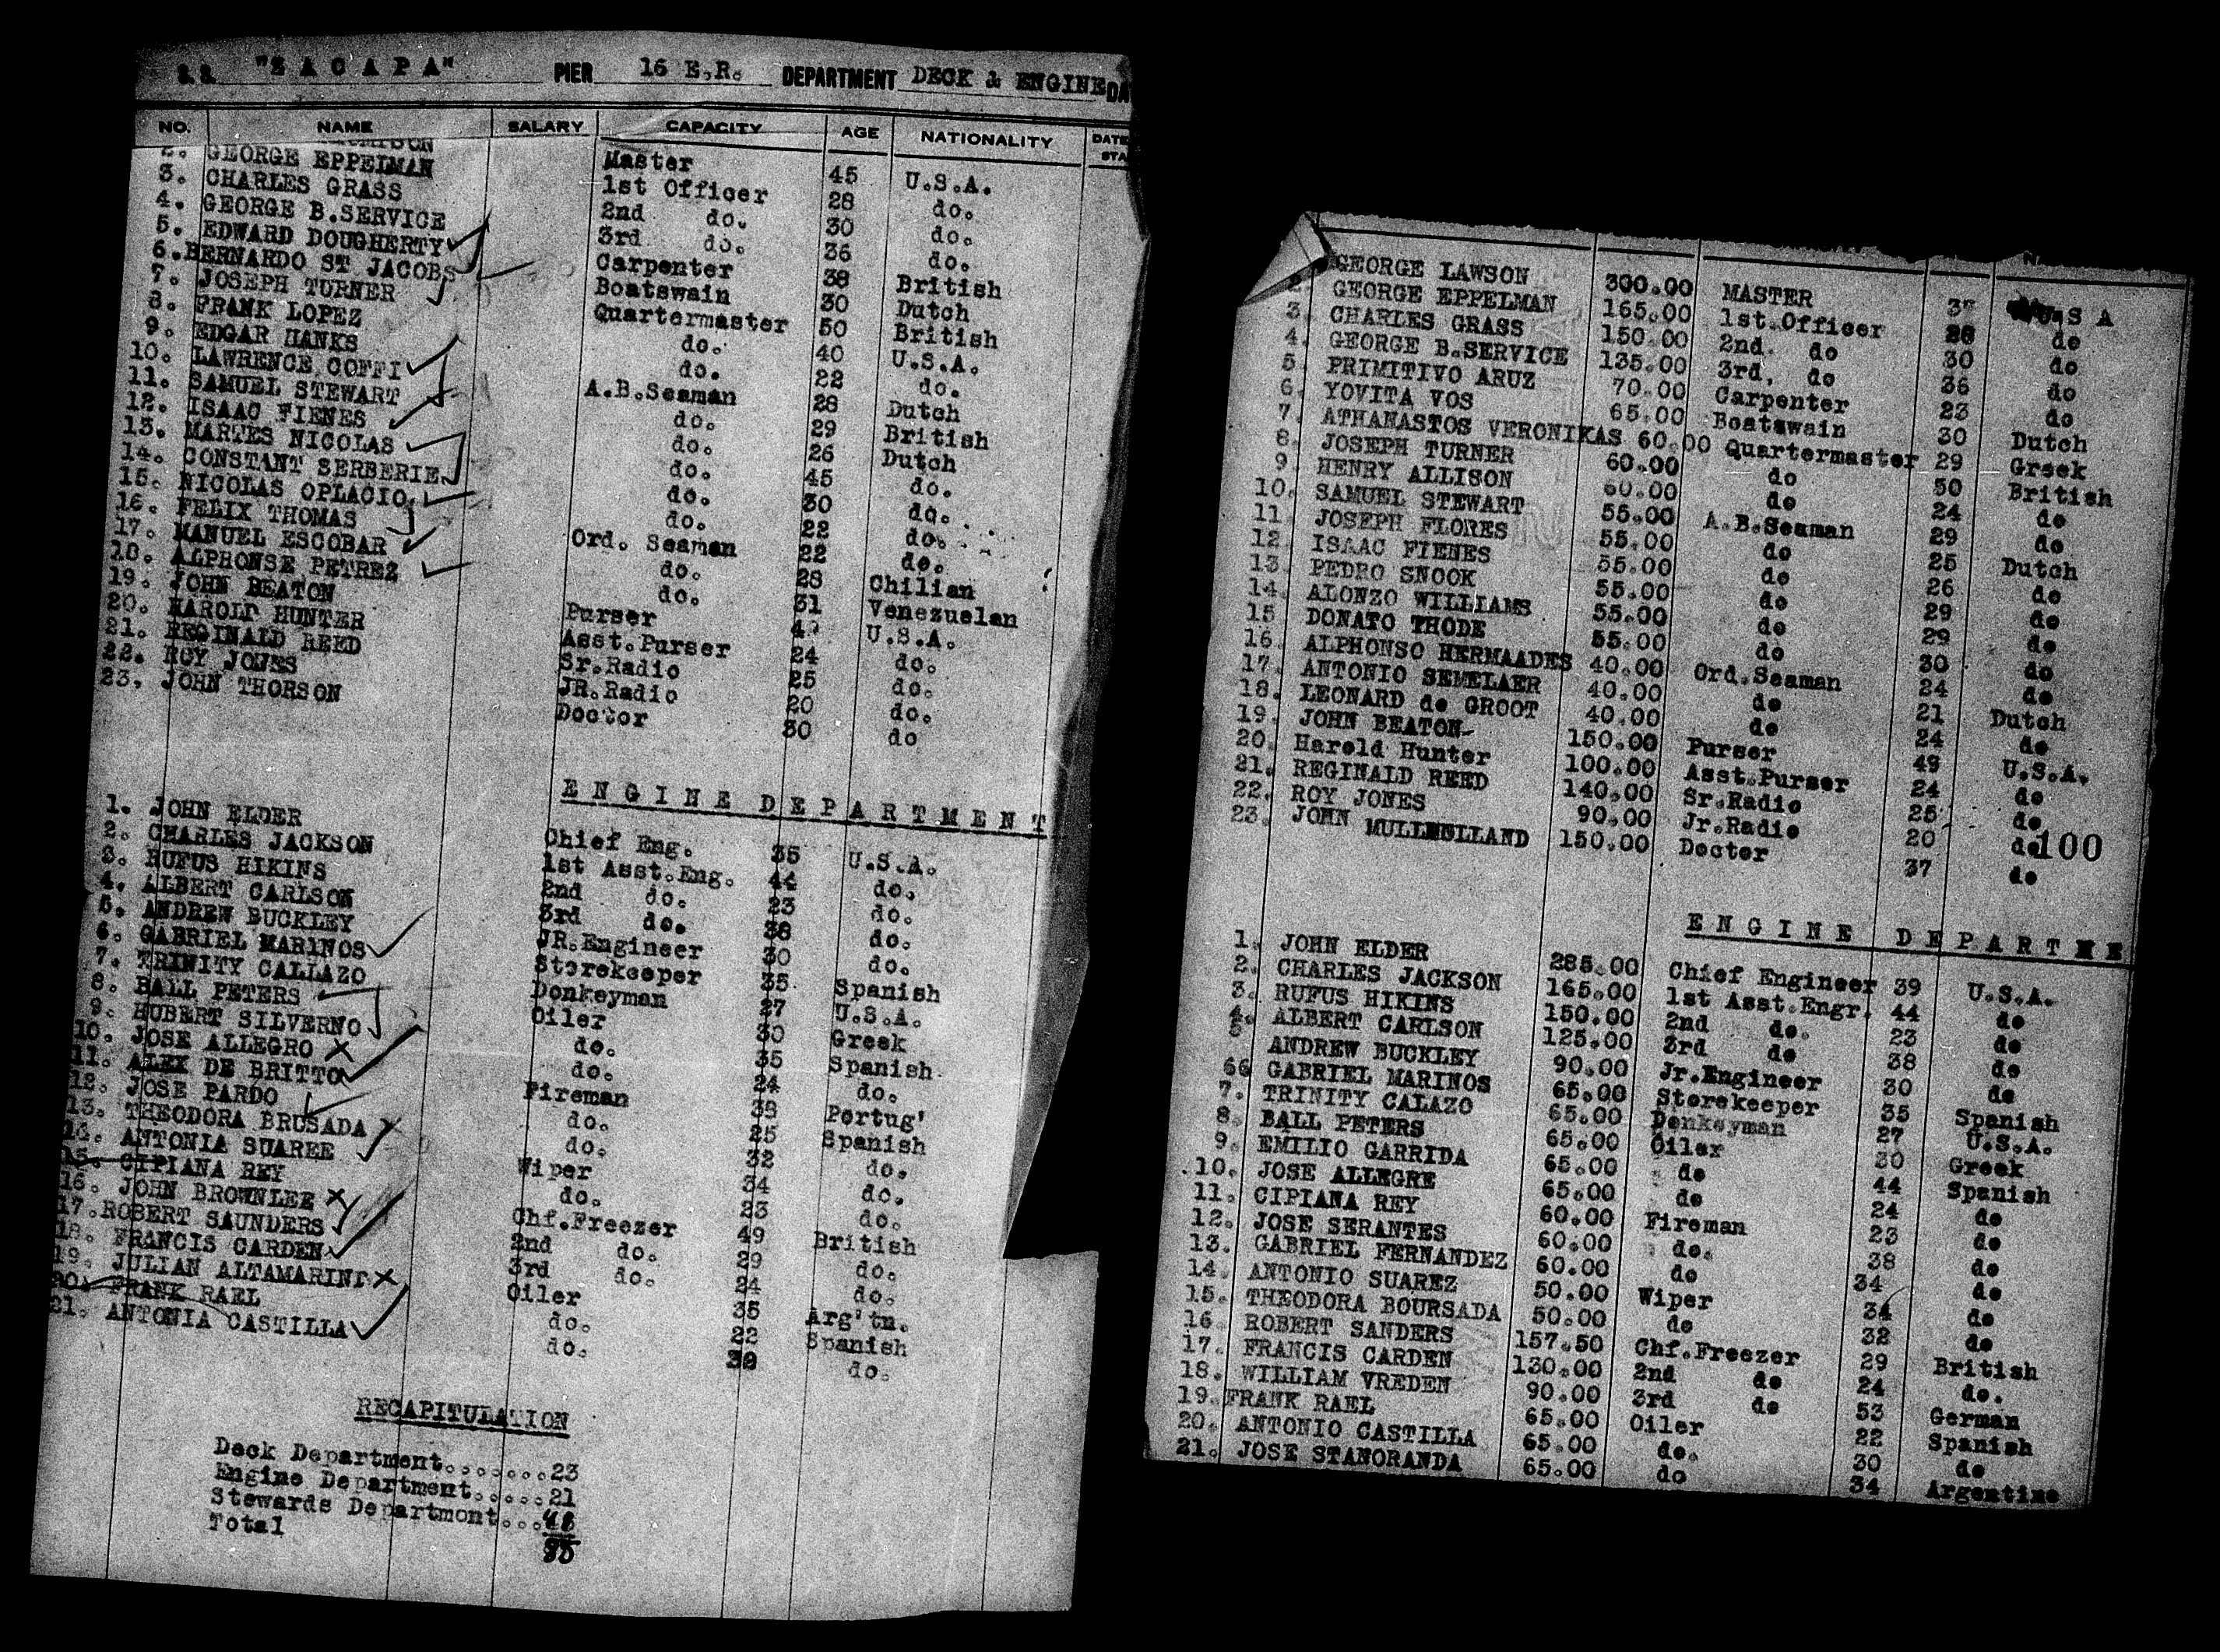 S.S. "ZACAPA" PIER 16 E.R. DEPARTMENT DECK & ENGINE DA
NO. NAME SALARY CAPACITY AGE NATIONALITY DATE STA
Master 45 U.S.A.
2. GEORGE EPPELMAN 1st Officer 28 do.
3. CHARLES GRASS 2nd do. 30 do.
4. GEORGE B.SERVICE 3rd do. 36 do.
5. EDWARD DOUGHERTY Carpenter 38 British
6. BERNARDO ST JACOBS Boatswain 30 Dutch
7. JOSEPH TURNER Quartermaster 50 British
8. FRANK LOPEZ do. 40 U.S.A.
9. EDGAR HANKS do. 22 do.
10. LAWRENCE COFFI A.B.Seaman 28 Dutch
11. SAMUEL STEWART do. 29 British
12. ISAAC FIENES do. 26 Dutch
13. MARTES NICOLAS do. 45 do.
14. CONSTANT SERBERIE do. 30 do.
15. NICOLAS OPLACIO do. 22 do.
16. FELIX THOMAS Ord. Seaman 22 do.
17. MANUEL ESCOBAR do. 28 Chilian
18. ALPHONSE PETREZ do. 31 Venezuelan
19. JOHN BEATON Purser 49 U.S.A.
20. HAROLD HUNTER Asst.Purser 24 do.
21. REGINALD REED Sr.Radio 25 do.
22. ROY JONES JR.Radio 20 do.
23. JOHN THORSON Doctor 30 do
ENGINE DEPARTMENT
1. JOHN ELDER Chief Eng. 35 U.S.A.
2. CHARLES JACKSON 1st Asst.Eng. 44 do.
3. RUFUS HIKINS 2nd do. 23 do.
4. ALBERT CARLSON 3rd do. 38 do.
5. ANDREW BUCKLEY JR.Engineer 30 do.
6. GABRIEL MARINOS Storekeeper 35 Spanish
7. TRINITY CALLAZO Donkeyman 27 U.S.A.
8. BALL PETERS Oiler 30 Greek
9. HUBERT SILVERNO do. 35 Spanish
10. JOSE ALLEGRO do. 24 do.
11. ALEX DE BRITTO Fireman 38 Portug'
12. JOSE PARDO do. 25 Spanish
13. THEODORA BRUSADA do. 32 do.
14. ANTONIA SUAREE Wiper 34 do.
15. CIPIANA REY do. 23 do.
16. JOHN BROWNLEE Chf.Freezer 49 British
17. ROBERT SAUNDERS 2nd do. 29 do.
18. FRANCIS CARDEN 3rd do. 24 do.
19. JULIAN ALTAMARINT Oiler 35 Arg'tn.
20. FRANK RAEL do. 22 Spanish
21. ANTONIA CASTILLA do. 30 do.
RECAPITULATION
Deck Department.......23
Engine Department.....21
Stewards Department...
Total
GEORGE LAWSON 300.00 MASTER U.S A
2 GEORGE EPPELMAN 165.00 1st.Officer 28 do
3. CHARLES GRASS 150.00 2nd. do 30 do
4. GEORGE B.SERVICE 135.00 3rd. do 36 do
5. PRIMITIVO ARUZ 70.00 Carpenter 23 do
6. YOVITA VOS 65.00 Boatswain 30 Dutch
7. ATHANASTOS VERONIKAS 60.00 Quartermaster 29 Greek
8. JOSEPH TURNER 60.00 do 50 British
9. HENRY ALLISON 60.00 do 24 do
10. SAMUEL STEWART 55.00 A.B.Seaman 29 do
11. JOSEPH FLORES 55.00 do 25 Dutch
12. ISAAC FIENES 55.00 do 26 do
13. PEDRO SNOOK 55.00 do 29 do
14. ALONZO WILLIAMS 55.00 do 29 do
15 DONATO THODE 55.00 do 30 do
16. ALPHONSO HERMAADES 40.00 Ord.Seaman 24 do
17. ANTONIO SEMELAER 40.00 do 21 Dutch
18. LEONARD de GROOT 40.00 do 24 do
19. JOHN BEATON 150.00 Purser 49 U.S.A.
20. Harold Hunter 100.00 Asst.Purser 24 do
21. REGINALD REED 140.00 Sr.Radio 25 do
22. ROY JONES 90.00 Jr.Radio 20 do
100
23. JOHN MULLHOLLAND 150.00 Doctor 37 do
ENGINE DEPARTME
1. JOHN ELDER 285.00 Chief Engineer 39 U.S.A.
2. CHARLES JACKSON 165.00 1st Asst.Engr. 44 do
3. RUFUS HIKINS 150.00 2nd do. 23 do
4. ALBERT CARLSON 125.00 3rd do 38 do
5 ANDREW BUCKLEY 90.00 Jr.Engineer 30 do
66 GABRIEL MARINOS 65.00 Storekeeper 35 Spanish
7. TRINITY CALAZO 65.00 Donkeyman 27 U.S.A.
8. BALL PETERS 65.00 Oiler 30 Greek
9. EMILIO GARRIDA 65.00 do 44 Spanish
10. JOSE ALLEGRE 65.00 do 24 do
11. CIPIANA REY 60.00 Fireman 23 do
12. JOSE SERANTES 60.00 do. 38 do
13. GABRIEL FERNANDEZ 60.00 do 34 do
14. ANTONIO SUAREZ 50.00 Wiper 34 do
15. THEODORA BOURSADA 50.00 do 32 do
16. ROBERT SANDERS 157.50 Chf.Freezer 29 British
17. FRANCIS CARDEN 130.00 2nd do 24 do.
18. WILLIAM VREDEN 90.00 3rd do 53 German
19. FRANK RAEL 65.00 Oiler 22 Spanish
20. ANTONIO CASTILLA 65.00 do. 30 do
21. JOSE STANORANDA 65.00 do 34 Argentine